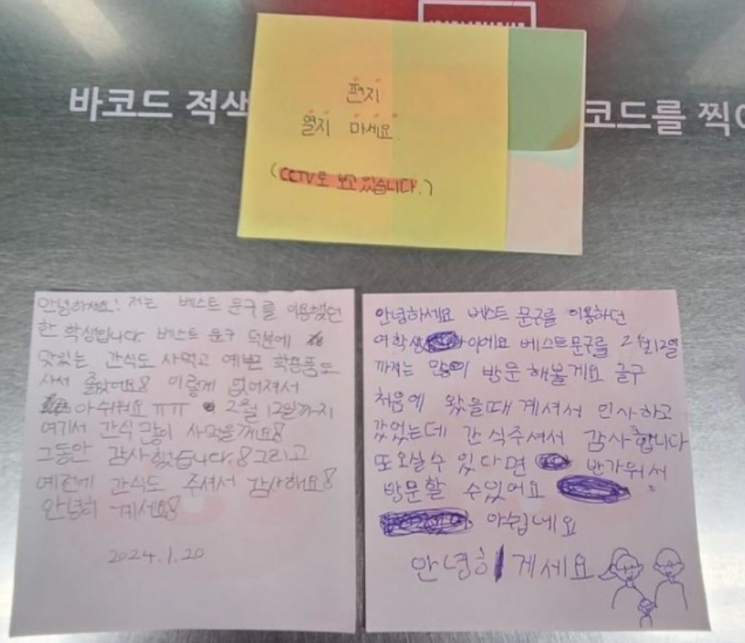 바코드 적색
코드를 찍
편지
열지 마세요.
(CCTV로 보고 있습니다.)
안녕하세요! 저는 베스트 문구를 이용했던
한 학생입니다 베스트 문구 덕분에
맛있는 간식도 사먹고 예쁜 학용품도
사서 좋았어요! 이렇게 없어져서
아쉬워요 ㅠㅠ 2월 12일까지
여기서 간식 많이 사먹을게요!
그동안 감사했습니다! 그리고
예전에 간식도 주셔서 감사해요!
안녕히 계세요!
2024.1.20
안녕하세요 베스트 문구를 이용하던
여학생 아에요 베스트문구를 2월12일
까지는 많이 방문 해볼게요 글구
처음에 왔을때 계셔서 인사하고
갔었는데 간식주셔서 감사합니다
또오실수 있다면 반가워서
방문할 수있어요
아쉽네요
안녕히 게세요